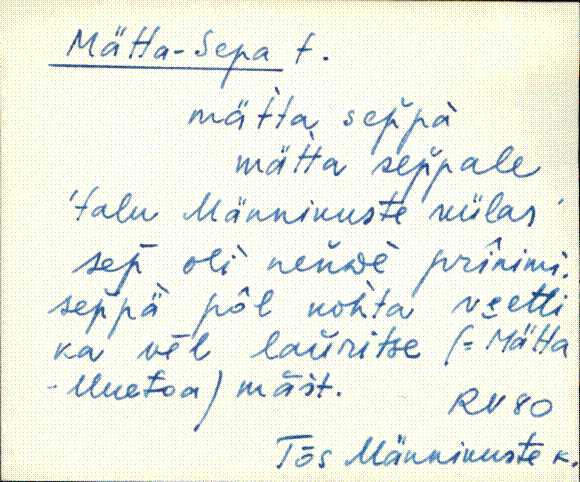 Mätta-Sepa t.
mät̀ta sep̆pà
mät̀ta sep̆pale
'talu Männikuste külas'
sep̆ oli neŭdè prînimi.
sep̆pä pôl kohta vɛetti
ka vēl laŭritse (= Mätta
-Uuetoa) mäst.
RN 80
Tõs Männikuste k.